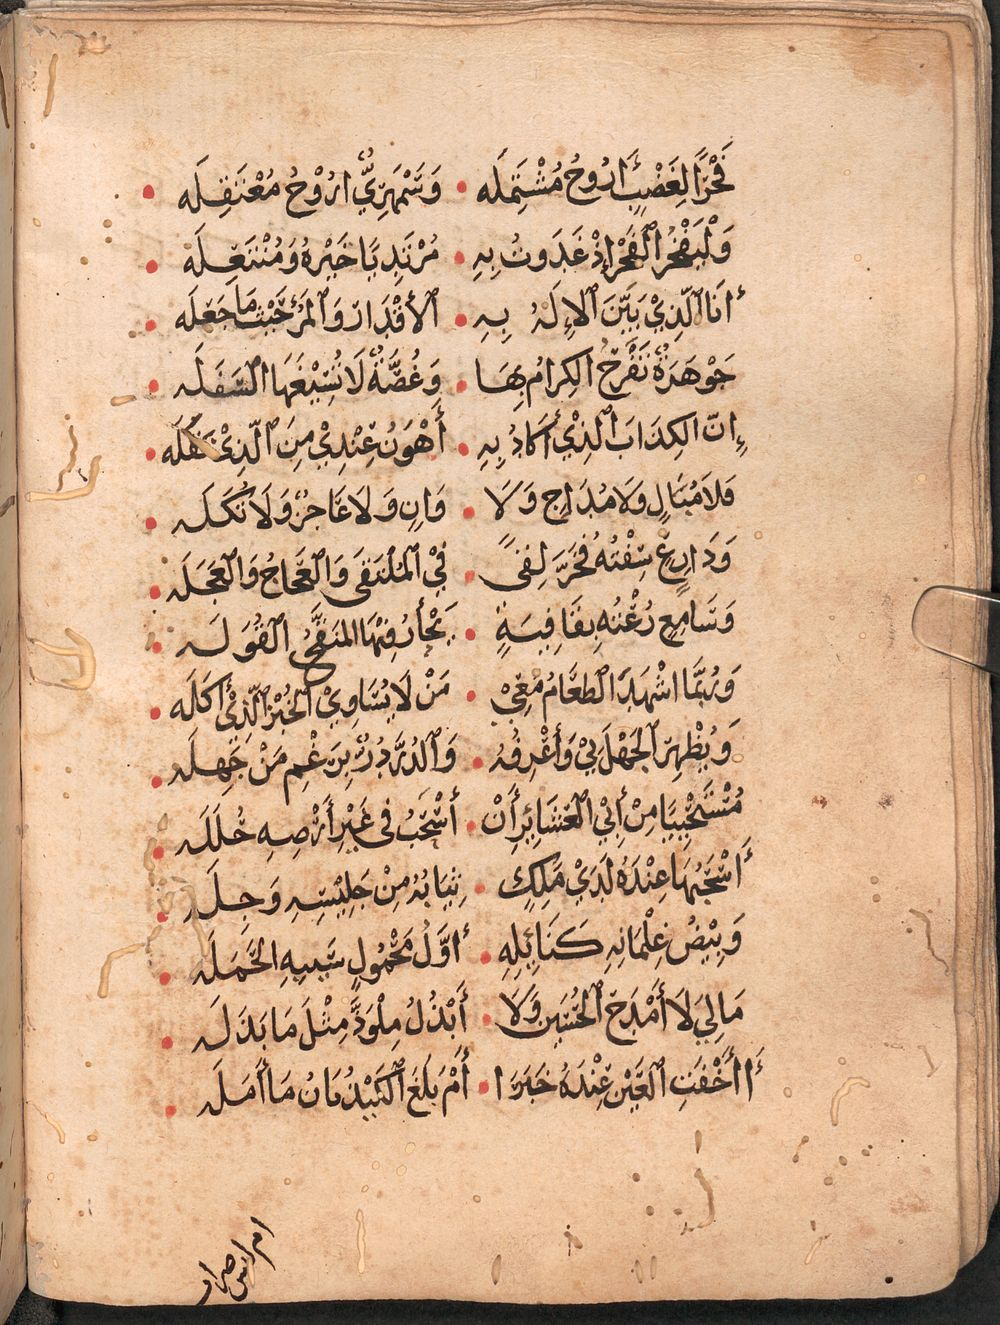 فَخْرًا لِعَضْبٍ أَرُوحُ مُشْتَمِلَه • وَسَمْهَرِيٍّ ارُوْحُ مُعْتَقِلَه •
وَلْيَفْخَرِ ٱلْفَخْرُ إِذْ غَدَوتُ بِهِ • مُرْتَدِيًا خَيْرَهُ وَمُنْتَعِلَه •
أَنَا ٱلَّذِيْ بَيَّنَ ٱلإِلَهُ بِهِ • ٱلأَقْدَارَ وَٱلمَرْءُ حَيْثُمَا جَعَلَه •
جَوْهَرَةٌ تَفْرَحُ الكِرَامُ بِهَا • وَغُصَّةٌ لَا تُسِيْغُهَا السَّفَلَه •
إِنَّ الكِذَابَ ٱلَّذِيْ أُكَادُ بِهِ • أَهْوَنُ عِنْدِيْ مِنَ ٱلَّذِيْ نَقَلَه •
فَلَا مُبَالٍ وَلَا مُدَاجٍ وَلَا • وَانٍ وَلَا عَاجِزٌ وَلَا تُكَلَه •
وَدَارِعٍ سِفْتُهُ فَخَرَّ لِقىً • فِيْ ٱلمُلْتَقَى وَٱلعَجَاجِ وَٱلعَجَلَه •
وَسَامِعٍ رُعْتُهُ بِقَافِيَةٍ • يَحَارُ فِيْهَا المُنَقِّحُ ٱلقُوَلَه •
وَرُبَّمَا اشْهَدُ ٱلطَعَامَ مَعِيْ • مَنْ لَا يُسَاوِيْ ٱلخُبْزَ ٱلَّذِيْ أَكَلَه •
وَيُظْهِرُ ٱلجَهْلَ بِيْ وَأَعْرِفُهُ • وَٱلدُرُّ دُرٌّ بِرَغْمِ مَنْ جَهِلَه •
مُسْتَحْيِيًا مِنْ أَبِيْ ٱلعَشَائِرِ أَنْ • أَسْحَبَ فِى غَيْرِ أَرْضِهِ حُلَلَه •
أَسْحَبُهَا عِنْدَهُ لَدَيْ مَلِكٍ • ثِيَابُهُ مِنْ جَلِيْسِهِ وَجِلَه •
وَبِيْضُ غِلْمَانِهِ كَنَائِلِهِ • أَوَّلُ مَحْمُولِ سَيْبِهِ الحَمَلَه •
مَا لِيَ لَا أَمْدَحُ ٱلحُسَيْنَ وَلَا • أَبْذُلُ مِلْوُدَّ مِثْلَ مَا بَذَلَه •
أَأَخْفَتِ ٱلعَيْنُ عِنْدَهُ خَبَرًا • أَمْ بَلَغَ ٱلكَيْذُبَانُ مَا أَمَلَه •
ام